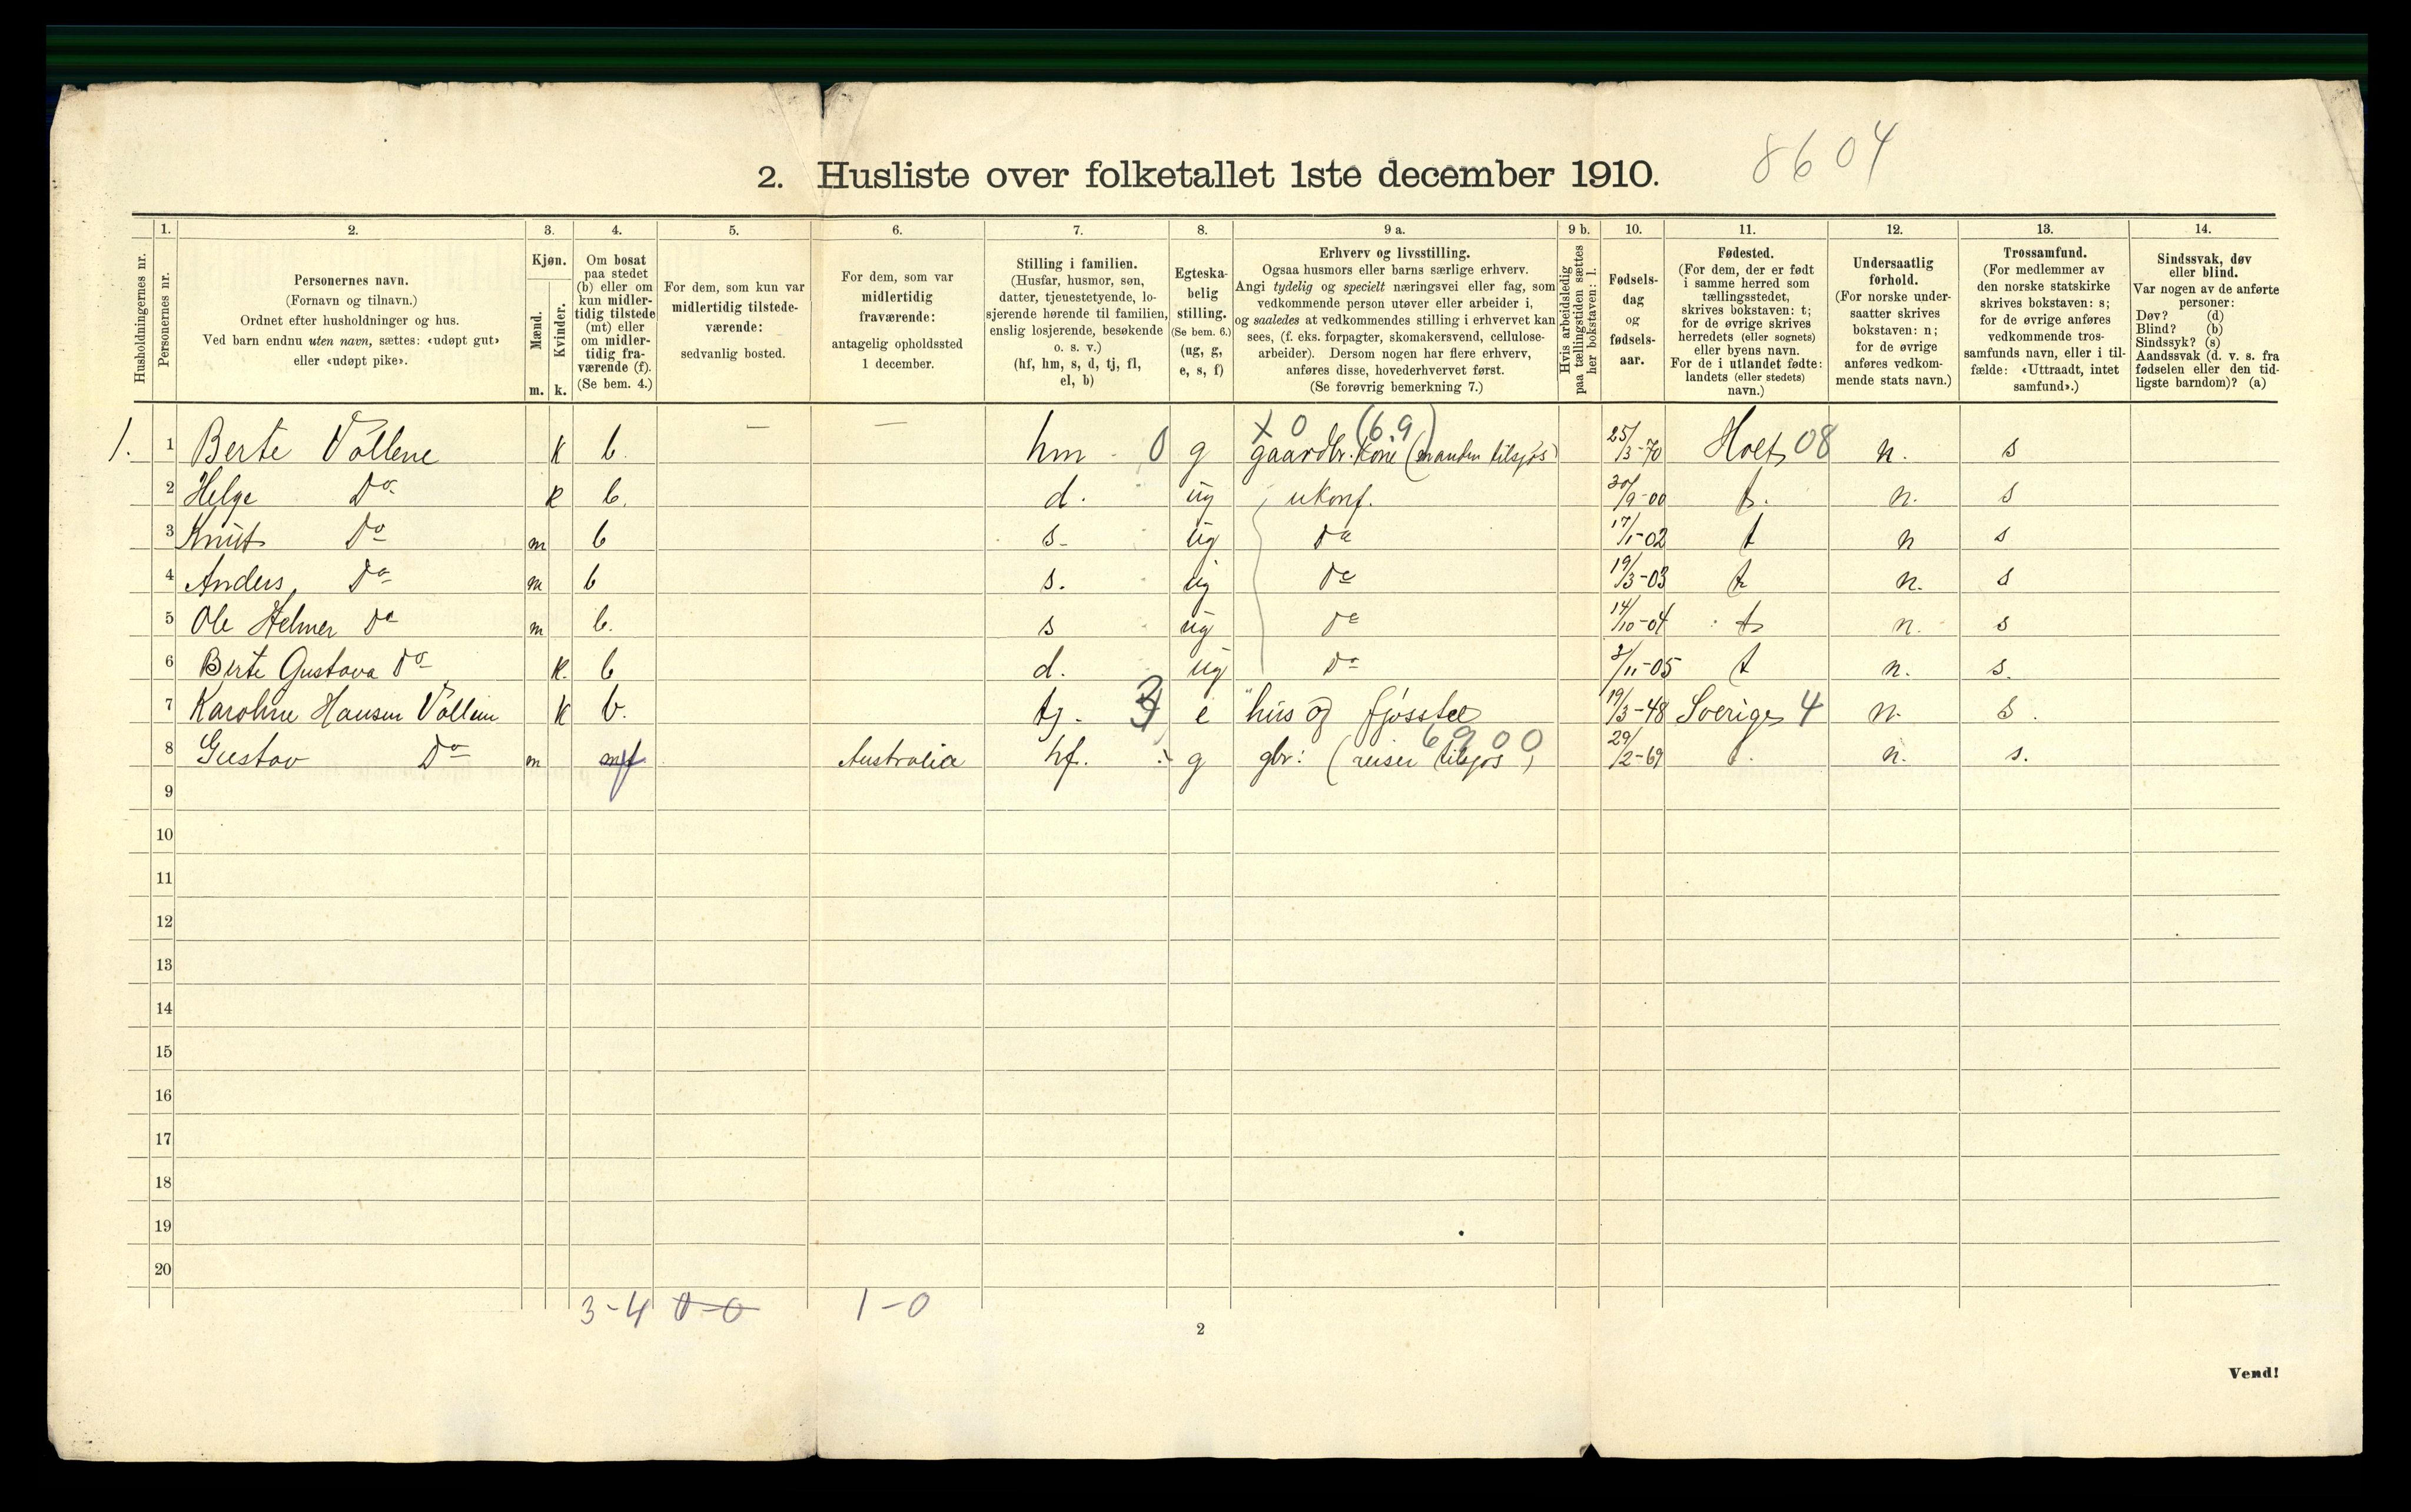 8604
2. Husliste over folketallet 1ste december 1910.
Husholdningernes nr.
1.
Personernes nr.
2.
Personernes navn.
(Fornavn og tilnavn.)
Ordnet efter husholdninger og hus.
Ved barn endnu uten navn, sættes: «udøpt gut»
eller «udøpt pike».
3.
Kjøn.
Mænd.
Kvinder.
m. k.
4.
Om bosat
paa stedet
(b) eller om
kun midler-
tidig tilstede
(mt) eller
om midler-
tidig fra-
værende (f).
(Se bem. 4.)
5.
For dem, som kun var
midlertidig tilstede-
værende:
sedvanlig bosted.
6.
For dem, som var
midlertidig
fraværende:
antagelig opholdssted
1 december.
7.
Stilling i familien.
(Husfar, husmor, søn,
datter, tjenestetyende, lo-
sjerende hørende til familien,
enslig losjerende, besøkende
o. s. v.)
(hf, hm, s, d, tj, fl,
el, b)
8.
Egteska-
belig
stilling.
(Se bem. 6.)
(ug, g,
e, s, f)
9 a.
Erhverv og livsstilling.
Ogsaa husmors eller barns særlige erhverv.
Angi tydelig og specielt næringsvei eller fag, som
vedkommende person utøver eller arbeider i,
og saaledes at vedkommendes stilling i erhvervet kan
sees, (f. eks. forpagter, skomakersvend, cellulose-
arbeider). Dersom nogen har flere erhverv,
anføres disse, hovederhvervet først.
(Se forøvrig bemerkning 7.)
9 b.
Hvis arbeidsledig
paa tællingstiden sættes
her bokstaven: l.
10.
Fødsels-
dag
og
fødsels-
aar.
11.
Fødested.
(For dem, der er født
i samme herred som
tællingsstedet,
skrives bokstaven: t;
for de øvrige skrives
herredets (eller sognets)
eller byens navn.
For de i utlandet fødte:
landets (eller stedets)
navn.)
12.
Undersaatlig
forhold.
(For norske under-
saatter skrives
bokstaven: n;
for de øvrige
anføres vedkom-
mende stats navn.)
13.
Trossamfund.
(For medlemmer av
den norske statskirke
skrives bokstaven: s;
for de øvrige anføres
vedkommende tros-
samfunds navn, eller i til-
fælde: «Uttraadt, intet
samfund».)
14.
Sindssvak, døv
eller blind.
Var nogen av de anførte
personer:
Døv? (d)
Blind? (b)
Sindssyk? (s)
Aandssvak (d. v. s. fra
fødselen eller den tid-
ligste barndom)? (a)
x 0 (6.9)
1. 1 Berte Vollene k b. — — hm 0 g gaardbr. kone (manden tilsjøs) 25/3-70 Holt 08 n. s
2 Helge Do k b. d. ug ukonf. 30/9-00 t. n. s
3 Knut Do m b s- ug do 17/1-02 t n s
4 Anders Do m b s. ug do 19/3-03 t n. s
5 Ole Helmer do m b. s ug do 14/10-04 t n. s
6 Berte Gustava do k. b d. ug do 2/11-05 t n. s.
7 Karoline Hansen Vollene k b. tj. e hus og fjösstel 19/3-48 Sverige 4 n. s.
6900
8 Gustav Do m mf Australia hf. g gbr. (reiser tilsjøs) 29/2-69 t. n. s.
9
10
11
12
13
14
15
16
17
18
19
20
3-4 0-0 1-0
2
Vend!